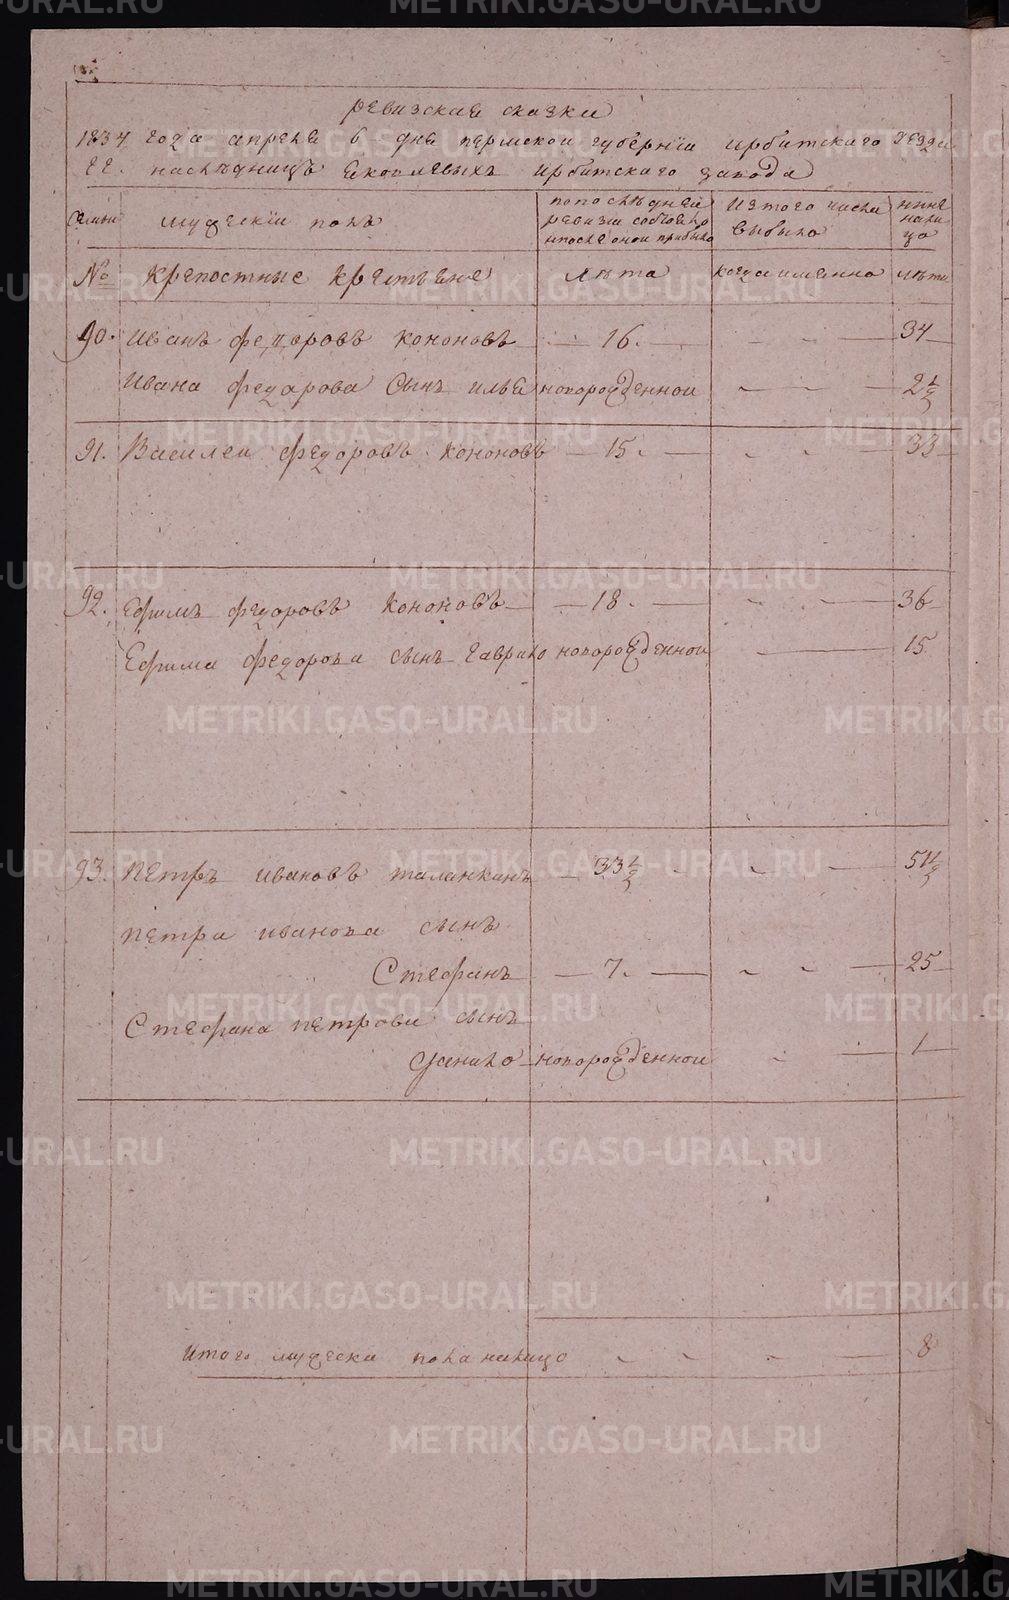 ревизская сказка
1834 года апреля 6 дня пермской губернiи ирбитского уезда
ЕЕ. наследницъ Яковлевыхъ ирбитского завода
Семьи
мужескiй полъ
по последней ревизiи состояло и после оной прибыло
Из того числа выбыло
ныне на лицо
№ крепостные крестьяне
лета
когда именно
лета
90. Иванъ федоровъ кононовъ — 16. — 34
Ивана федорова Сынъ илья новорожденной — 2 1/2
91. Василеи федоровъ кононовъ — 15. — 33
92. Ефимъ федоровъ кононовъ — 18. — 36
Ефима федорова сынъ гаврило новорожденной — 15
93. Петръ ивановъ таланкинъ — 33 1/2 — 51 1/2
петра иванова сынъ
Стефанъ — 7. — 25
Стефана петрова сынъ
данило новорожденной — 1
итого мужеска пола налицо — 8
METRIKI.GASO-URAL.RU